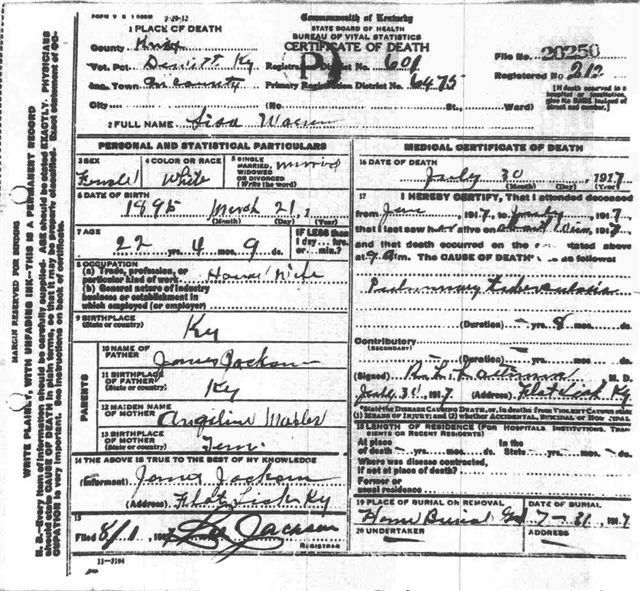 FORM V S 1 2-29-12
1 PLACE OF DEATH
Commonwealth of Kentucky
STATE BOARD OF HEALTH
BUREAU OF VITAL STATISTICS
CERTIFICATE OF DEATH
County Knox
File No. 20250
Vot. Pct. Dewitt Ky
Registration District No. 601
Registered No. 212
Inc. Town
Primary Registration District No. 6475
[If death occurred in a hospital or institution, give its NAME instead of street and number.]
City (No. St., Ward)
2 FULL NAME
PERSONAL AND STATISTICAL PARTICULARS
3 SEX
Female
4 COLOR OR RACE
White
5 SINGLE MARRIED, WIDOWED OR DIVORCED (Write the word)
married
6 DATE OF BIRTH
1895 March 21, 1
(Month) (Day) (Year)
7 AGE
22 yrs. 4 mos. 9 ds.
IF LESS than 1 day... hrs. or... min.?
8 OCCUPATION
(a) Trade, profession, or particular kind of work House Wife
(b) General nature of industry business or establishment in which employed (or employer)
9 BIRTHPLACE
(State or country) Ky
PARENTS
10 NAME OF FATHER
James Jackson
11 BIRTHPLACE OF FATHER
(State or country) Ky
12 MAIDEN NAME OF MOTHER
Angeline
13 BIRTHPLACE OF MOTHER
(State or country) Tenn.
14 THE ABOVE IS TRUE TO THE BEST OF MY KNOWLEDGE
(Informant) James Jackson
(Address) Flat Lick Ky
15
Filed 8/1, 1917 Jackson
REGISTRAR
11-3184
MEDICAL CERTIFICATE OF DEATH
16 DATE OF DEATH
July 30, 1917
(Month) (Day) (Year)
17 I HEREBY CERTIFY, That I attended deceased
from Jan, 1917, to July, 1917,
that I last saw h alive on 1917,
and that death occurred on the date stated above
at 9 m. The CAUSE OF DEATH was as follows:
Pulmonary Tuberculosis
(Duration) yrs. 8 mos. ds.
Contributory
(SECONDARY)
(Duration) yrs. mos. ds.
(Signed) M. D.
July 31, 1917 (Address) Flat Lick Ky
*State the DISEASE CAUSING DEATH, or, in deaths from VIOLENT CAUSES state (1) MEANS OF INJURY; and (2) whether ACCIDENTAL, SUICIDAL or HOMICIDAL
18 LENGTH OF RESIDENCE (FOR HOSPITALS, INSTITUTIONS, TRANSIENTS OR RECENT RESIDENTS)
At place of death yrs. mos. ds. In the State yrs. mos. ds.
Where was disease contracted, if not at place of death?
Former or usual residence
19 PLACE OF BURIAL OR REMOVAL
Home Burial
DATE OF BURIAL
7-31, 1917
20 UNDERTAKER
ADDRESS
MARGIN RESERVED FOR BINDING
WRITE PLAINLY, WITH UNFADING INK—THIS IS A PERMANENT RECORD
N. B.—Every item of information should be carefully supplied. AGE should be stated EXACTLY. PHYSICIANS should state CAUSE OF DEATH in plain terms, so that it may be properly classified. Exact statement of OCCUPATION is very important. See instructions on back of certificate.